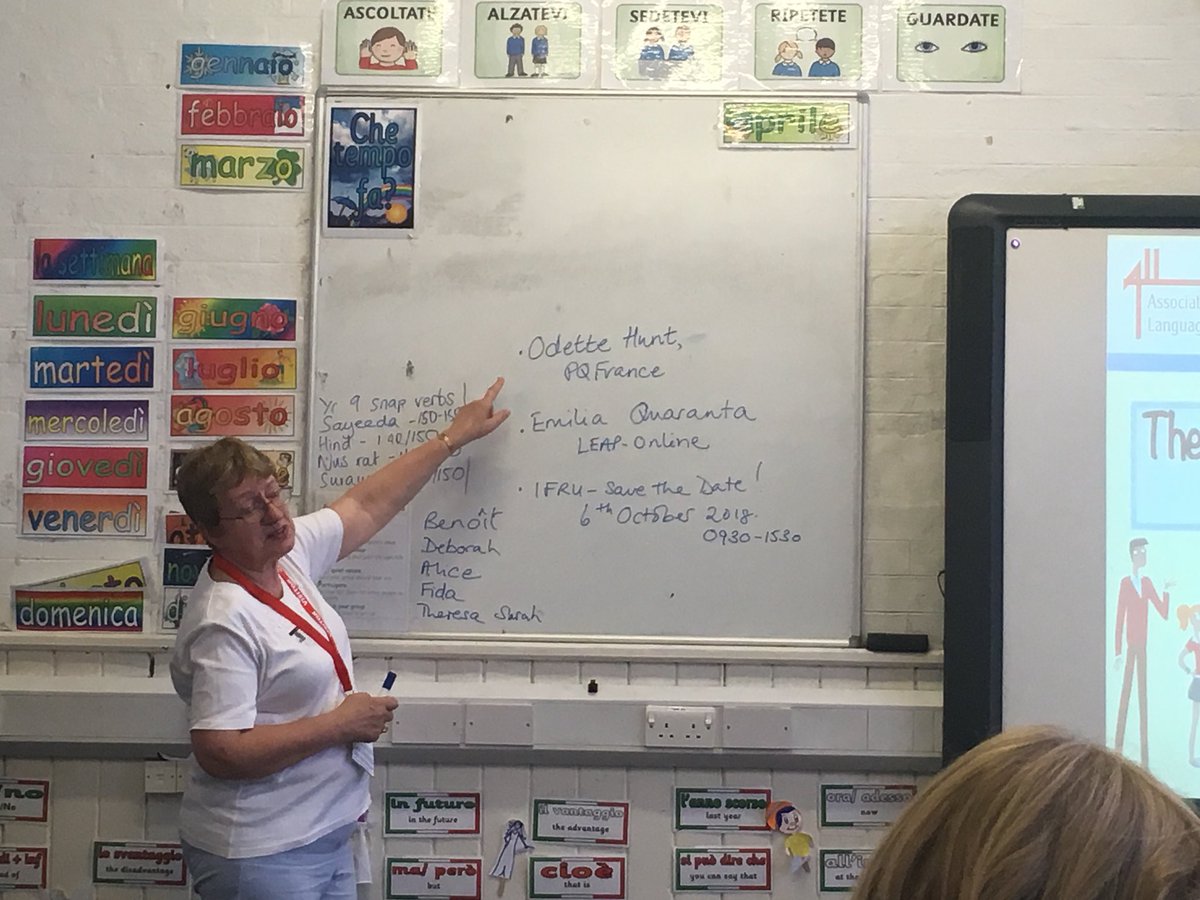 ASCOLTATE
ALZATEVI
SEDETEVI
RIPETETE
GUARDATE
gennaio
febbraio
marzo
Che
tempo
fa?
aprile
la settimana
lunedì
martedì
mercoledì
giovedì
venerdì
domenica
giugno
luglio
agosto
Yr 9 snap verbs!
Sayeeda - 150-15
Hind - 140/150
Nusrat -
/150
Benoît
Deborah
Alice
Fida
Theresa Sarah
· Odette Hunt,
PQ France
· Emilia Quaranta
LEAP-Online
· IFRU - Save the Date!
6th October 2018.
0930-1530
Associat
Languag
The
/no
/No
di + inf
lo svantaggio
the disadvantage
in futuro
in the future
il vantaggio
the advantage
l'anno scorso
last year
ora/ adesso
now
ma/ però
but
cioè
that is
si può dire che
you can say that
all'i
at the